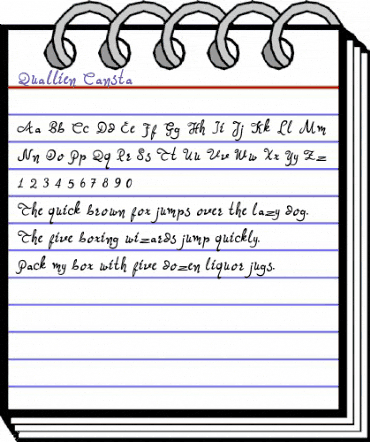 Quallien Cansta
Aa Bb Cc Dd Ee Ff Gg Hh Ii Jj Kk Ll Mm
Nn Oo Pp Qq Rr Ss Tt Uu Vv Ww Xx Yy Zz
1 2 3 4 5 6 7 8 9 0
The quick brown fox jumps over the lazy dog.
The five boxing wizards jump quickly.
Pack my box with five dozen liquor jugs.